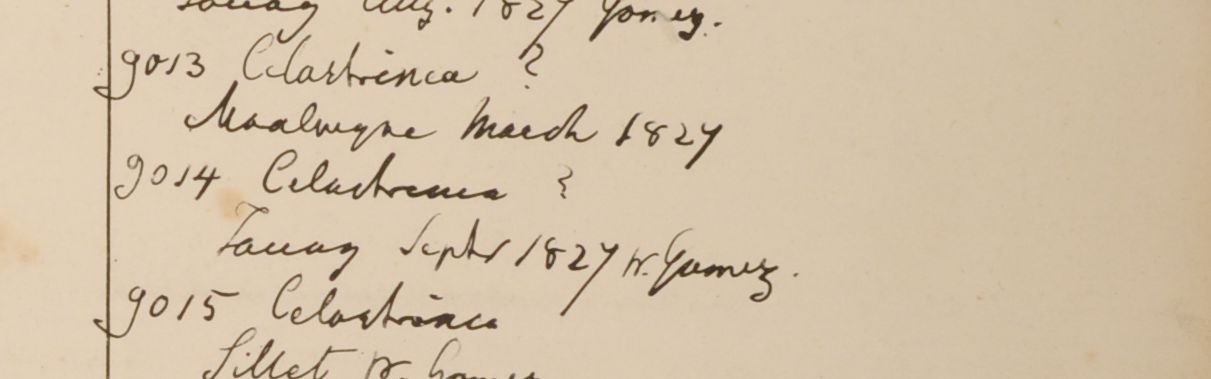 Tavoy Aug. 1827 Gomez.
9013 Celastrinea ?
Moalmyne March 1827
9014 Celastrinea ?
Tavoy Septr 1827 W. Gomez.
9015 Celastrinea
Sillet W. Gomez